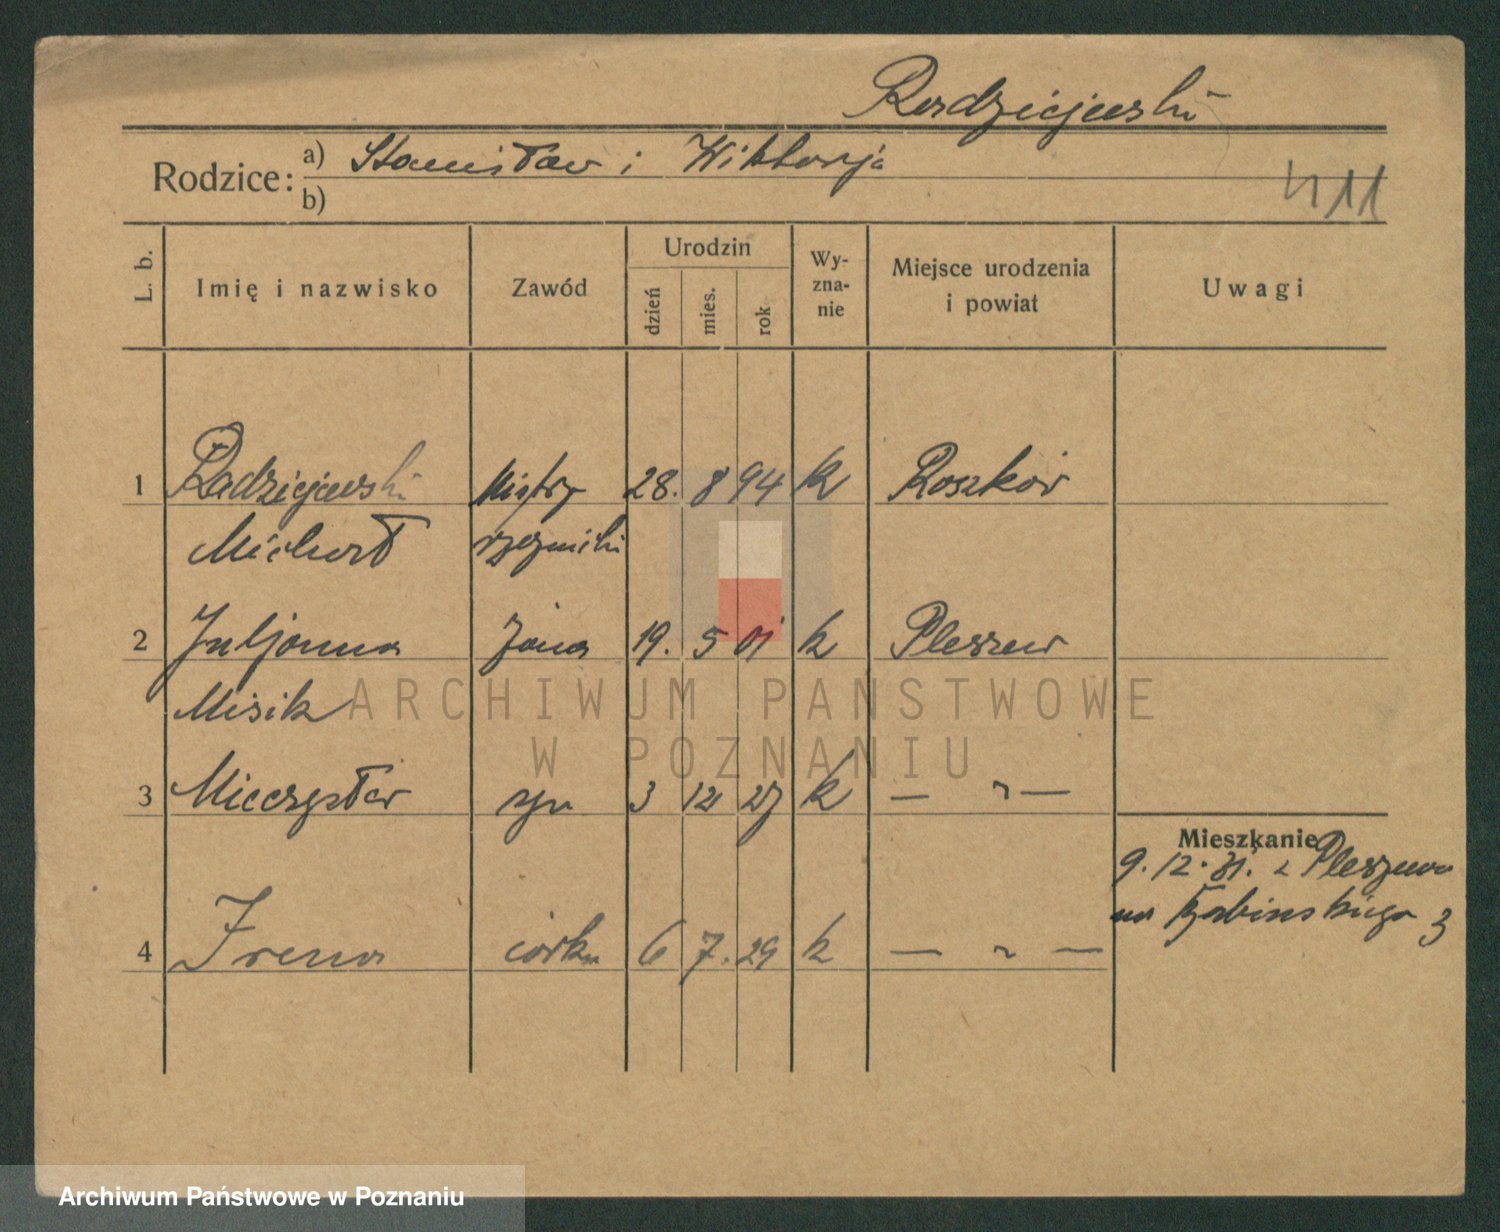 Radziejewski
Rodzice: a) Stanisław i Wiktorja
b)
411
L. b. Imię i nazwisko Zawód Urodzin dzień mies. rok Wy-zna-nie Miejsce urodzenia i powiat Uwagi
1 Radziejewski Mistrz 28. 8 94 k Roszków
Michał rzeznicki
2 Juljanna żona 19. 5 01 k Pleszew
Misik
3 Mieczysław syn 3 12 27 k — " —
Mieszkanie
9.12.31. z Pleszewa
na 3
4 Irena córka 6 7. 29 k — " —
ARCHIWUM PAŃSTWOWE
W POZNANIU
Archiwum Państwowe w Poznaniu